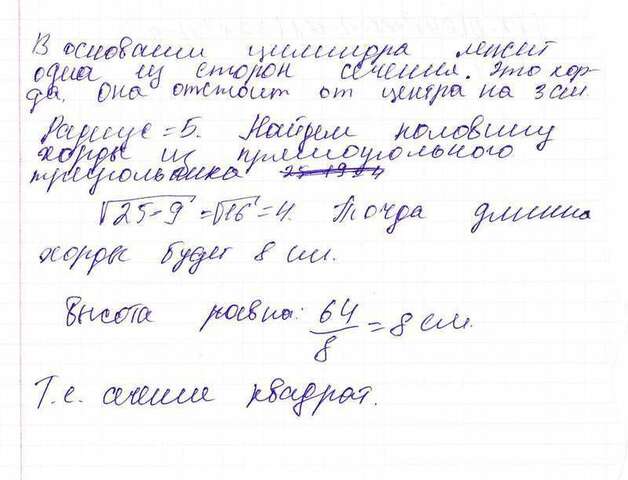 В основании цилиндра лежит
одна из сторон сечения. Это хор-
да. Она отстоит от центра на 3 см
Радиус = 5. Найдем половину
хорды из прямоугольного
треугольника
√25-9 = √16 = 4. Тогда длина
хорды будет 8 см.
Высота равна: 64/8 = 8 см.
Т.е. сечение квадрат.